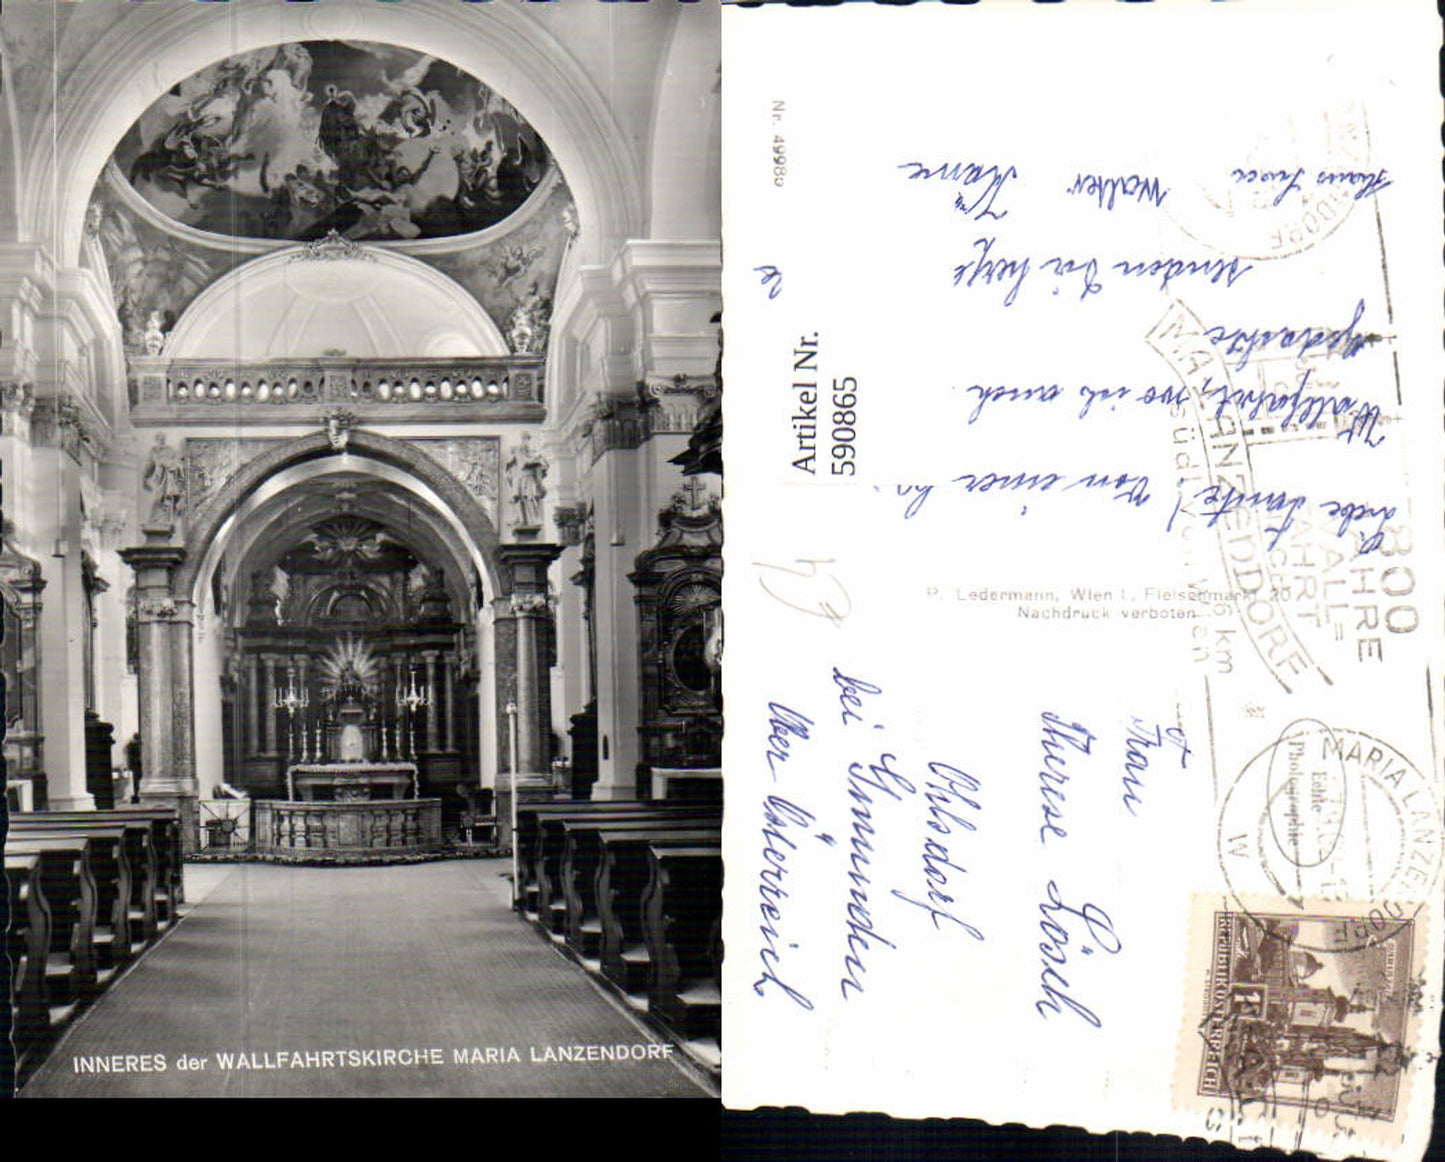 INNERES der WALLFAHRTSKIRCHE MARIA LANZENDORF
Nr. 49980
Artikel Nr.
590865
Liebe Tante! Von einer
Wallfahrt, wo ich auch
gedachte
senden Dir herzl.
Walter
P. Ledermann, Wien I., Fleischmarkt 20
Nachdruck verboten
800
JAHRE
WALL=
FAHRT
MARIA LANZENDORF
6 km
südl. von Wien
MARIA LANZENDORF
Echte
Photographie
REPUBLIK ÖSTERREICH
Frau
Therese Lösch
Ohlsdorf
bei Gmunden
Ober Österreich